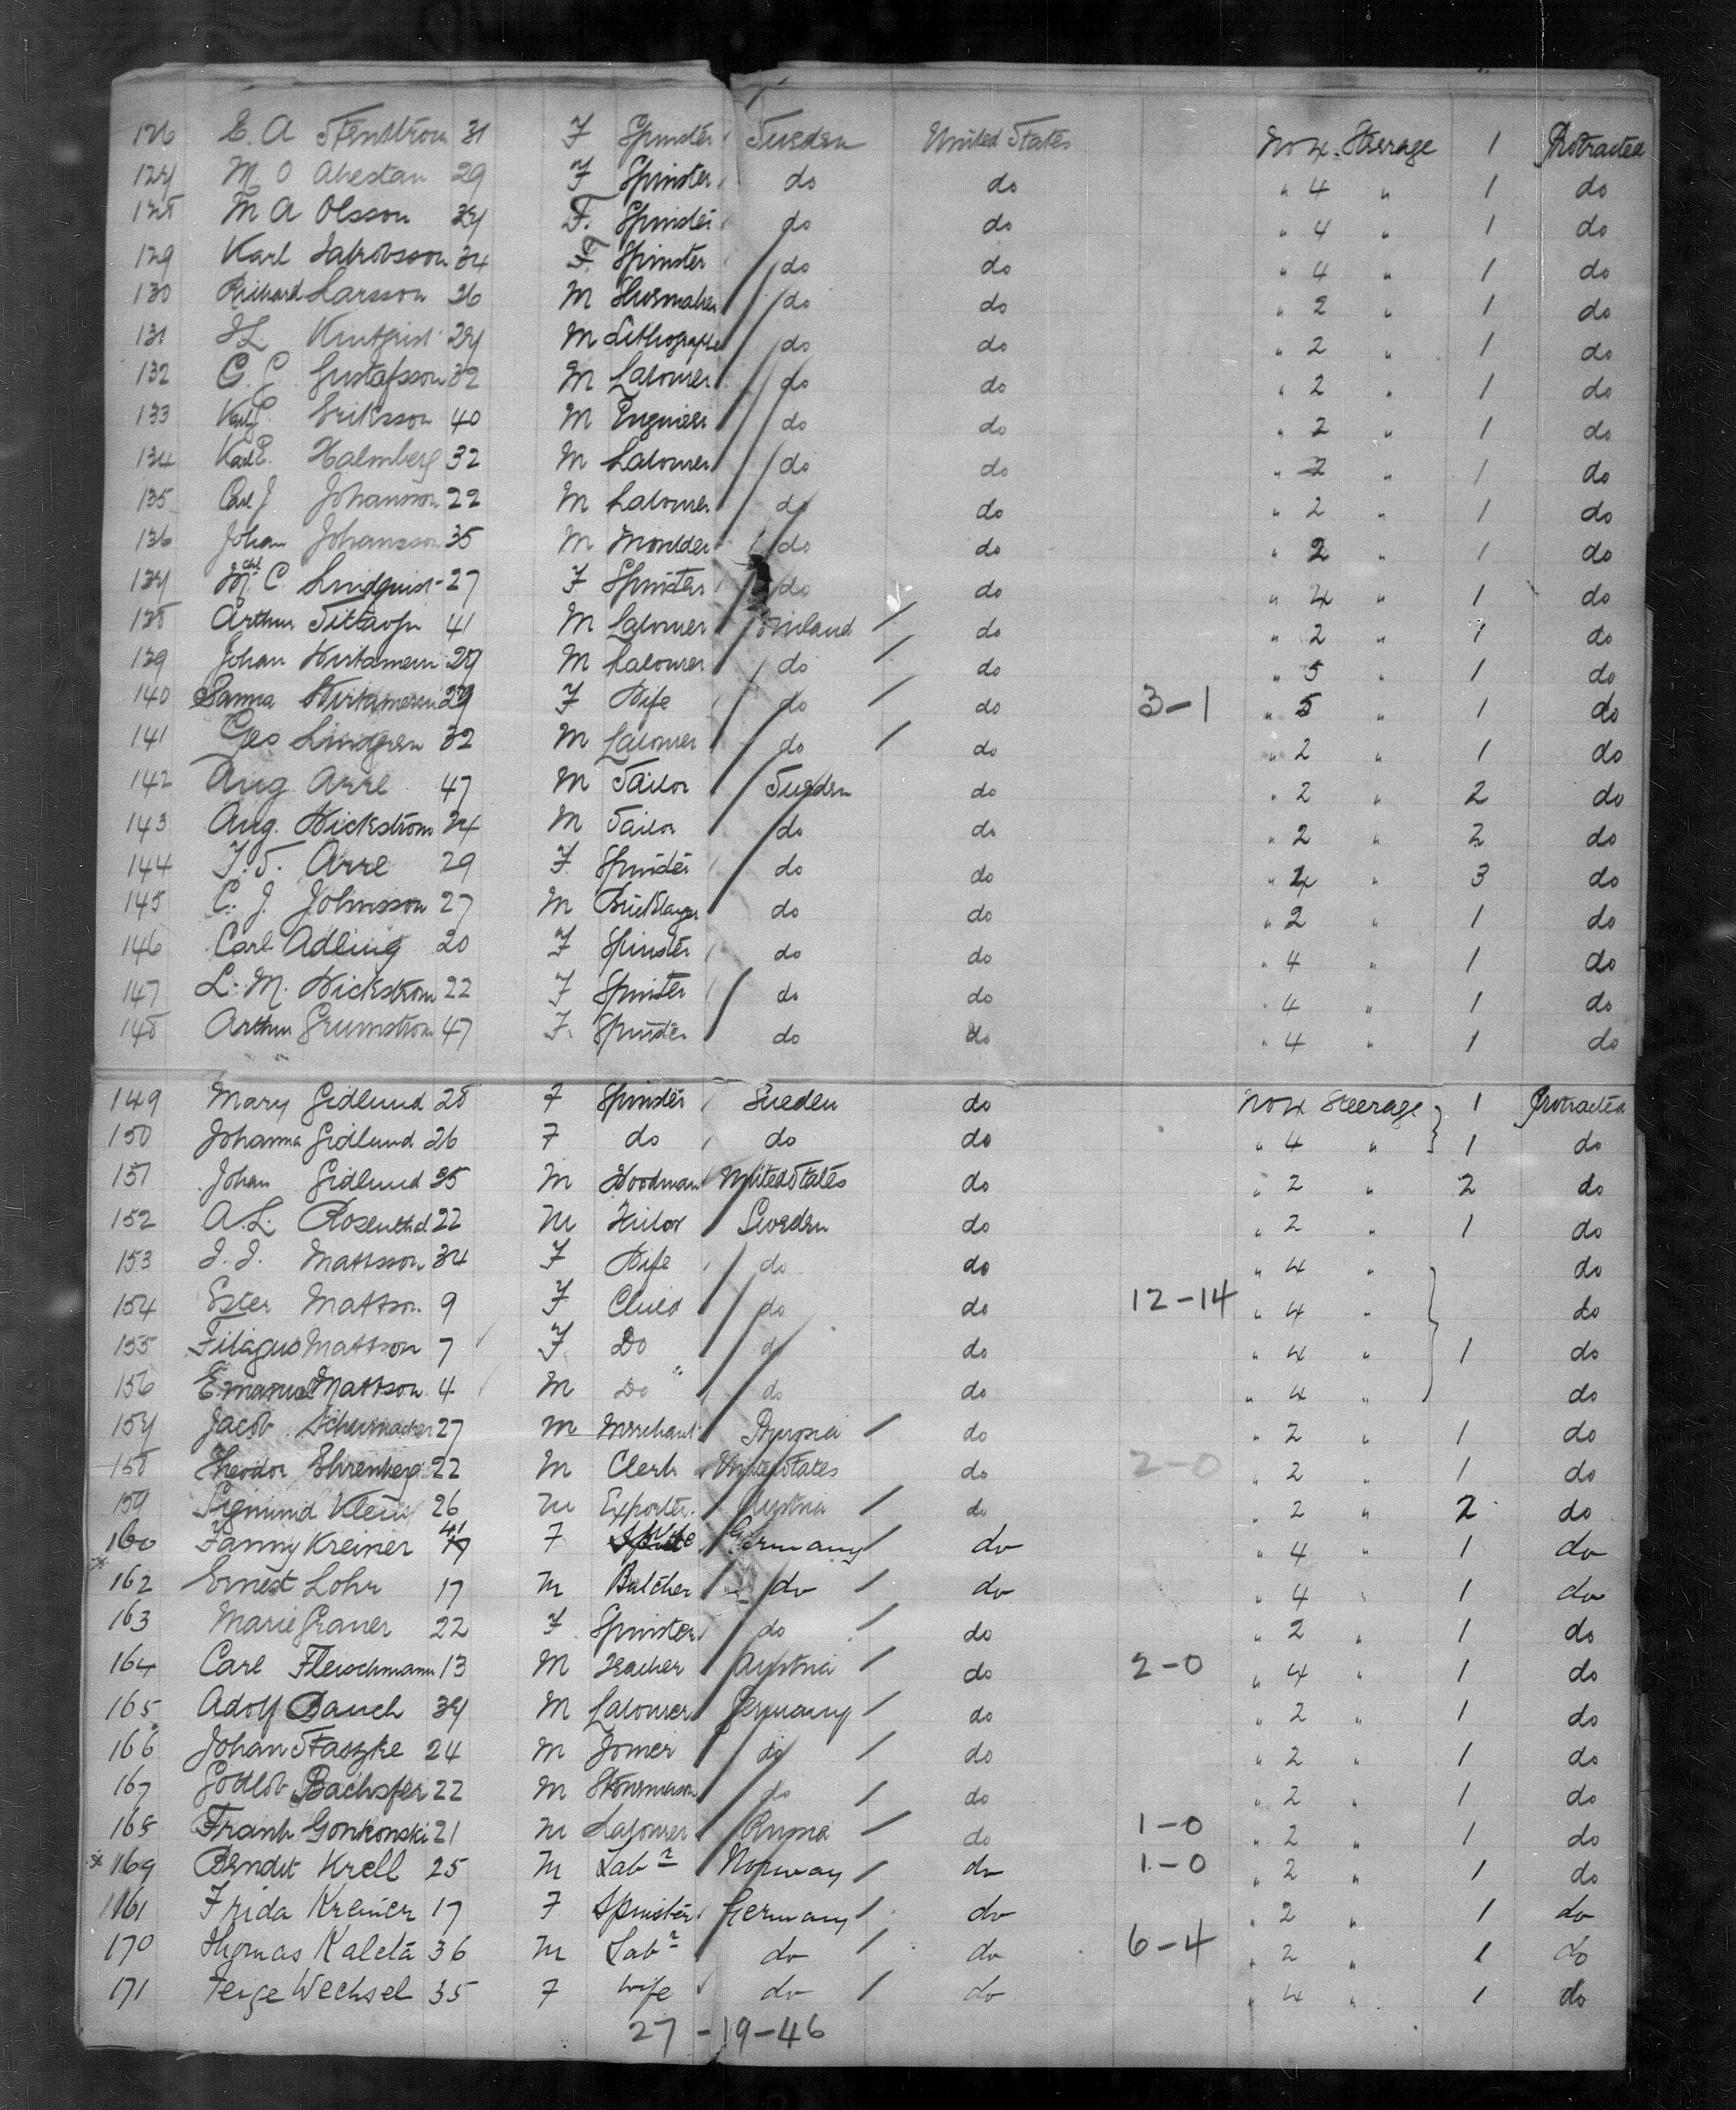 126 E. A Stenstrom 31 F Spinster Sweden United States No 4 Steerage 1 Protracted
127 M. O 29 F Spinster do do " 4 " 1 do
128 M A Olsson 27 F. Spinster do do " 4 " 1 do
129 Karl Jakobsson 34 F. Spinster do do " 4 " 1 do
130 Richard Larsson 26 M Shoemaker do do " 2 " 1 do
131 27 M Lithographer do do " 2 " 1 do
132 C. J. Gustafsson 32 M Labourer do do " 2 " 1 do
133 Karl Eriksson 40 M Engineer do do " 2 " 1 do
134 Karl E. Halmberg 32 M Labourer do do " 2 " 1 do
135 Carl J Johansson 22 M Labourer do do " 2 " 1 do
136 Johan Johansson 35 M Moulder do do " 2 " 1 do
137 M. C. Lindquist 27 F Spinster do do " 4 " 1 do
138 Arthur 41 M Labourer Finland do " 2 " 1 do
139 Johan 27 M Labourer do do " 5 " 1 do
140 Sanna 29 F Wife do do 3-1 " 5 " 1 do
141 Geo Lindgren 32 M Labourer do do " 2 " 1 do
142 Aug Arre 47 M Tailor Sweden do " 2 " 2 do
143 Aug. Wickstrom 24 M Tailor do do " 2 " 2 do
144 F. T. Arre 29 F. Spinster do do " 4 " 3 do
145 C. J. Johnsson 27 M Bricklayer do do " 2 " 1 do
146 Carl Adling 20 F Spinster do do " 4 " 1 do
147 L. M. Wickstrom 22 F Spinster do do " 4 " 1 do
148 Arthur Grumstrom 47 F. Spinster do do " 4 " 1 do
149 Mary Gidlund 28 F Spinster Sweden do No 4 Steerage 1 Protracted
150 Johanna Gidlund 26 F do do do " 4 " 1 do
151 Johan Gidlund 35 M Woodman United States do " 2 " 2 do
152 A. L. Rosenthal 22 M Tailor Sweden do " 2 " 1 do
153 J. J. Mattsson 34 F Wife do do " 4 " do
154 Ester Mattson 9 F Child do do 12-14 " 4 " do
155 Mattson 7 F. Do do do " 4 " 1 do
156 Emanuel Mattson 4 M Do do do " 4 " do
157 Jacob Schumacher 27 M Merchant do " 2 " 1 do
158 Theodor Ehrenberg 22 M Clerk United States do 2-0 " 2 " 1 do
159 Sigmund Klein 26 M Exporter. Austria do " 2 " 2 do
160 Fanny Kreiner 41 F Wife Germany do " 4 " 1 do
162 Ernest Lohr 17 M Butcher do do " 4 " 1 do
163 Marie Graner 22 F Spinster do do " 2 " 1 do
164 Carl Fleischmann 13 M Teacher Austria do 2-0 " 4 " 1 do
165 Adolf Bauch 34 M Labourer Germany do " 2 " 1 do
166 Johan Staszke 24 M Joiner do do " 2 " 1 do
167 Gottlob Bachofer 22 M Stonemason do do " 2 " 1 do
168 Frank Gonkonski 21 M Labourer Russia do 1-0 " 2 " 1 do
* 169 Bendit Krell 25 M Labr Norway do 1-0 " 2 " 1 do
161 Frida Kreiner 17 F Spinster Germany do " 2 " 1 do
170 Thomas Kaleta 36 M Labr do do 6-4 " 2 " 1 do
171 Feige Wechsel 35 F Wife do do " 4 " 1 do
27-19-46